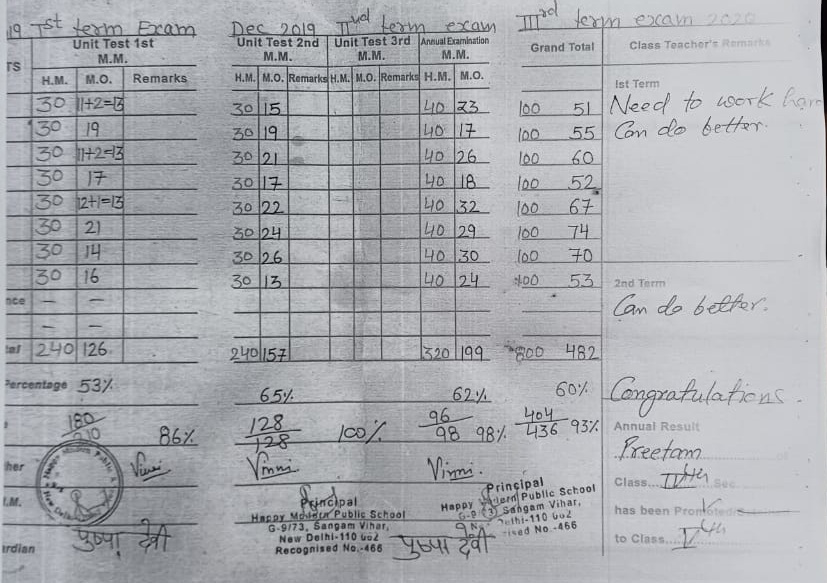 19 Ist term Exam Dec 2019 IInd term exam IIIrd term exam 2020
Unit Test 1st Unit Test 2nd Unit Test 3rd Annual Examination Grand Total Class Teacher's Remarks
M.M. M.M. M.M. M.M.
TS H.M. M.O. Remarks H.M. M.O. Remarks H.M. M.O. Remarks H.M. M.O.
Ist Term
30 11+2=13 30 15 40 23 100 51 Need to work hard
30 19 30 19 40 17 100 55 Can do better.
30 11+2=13 30 21 40 26 100 60
30 17 30 17 40 18 100 52
30 12+1=13 30 22 40 32 100 67
30 21 30 24 40 29 100 74
30 14 30 26 40 30 100 70
30 16 30 13 40 24 100 53
2nd Term
nce — — Can do better.
— —
tal 240 126 240 157 320 199 800 482
Percentage 53% 65% 62% 60% Congratulations.
180/210 86% 128/128 100% 96/98 98% 404/436 93% Annual Result
her Vinni Vinni Vinni. Preetam
Class.... IVth Sec
I.M. Principal Principal
Happy Modern Public School Happy Modern Public School has been Promoted
G-9/73, Sangam Vihar, Sangam Vihar,
New Delhi-110 062 Delhi-110 062 to Class.... Vth
Recognised No.-466 No.-466
ardian पुष्पा देवी पुष्पा देवी